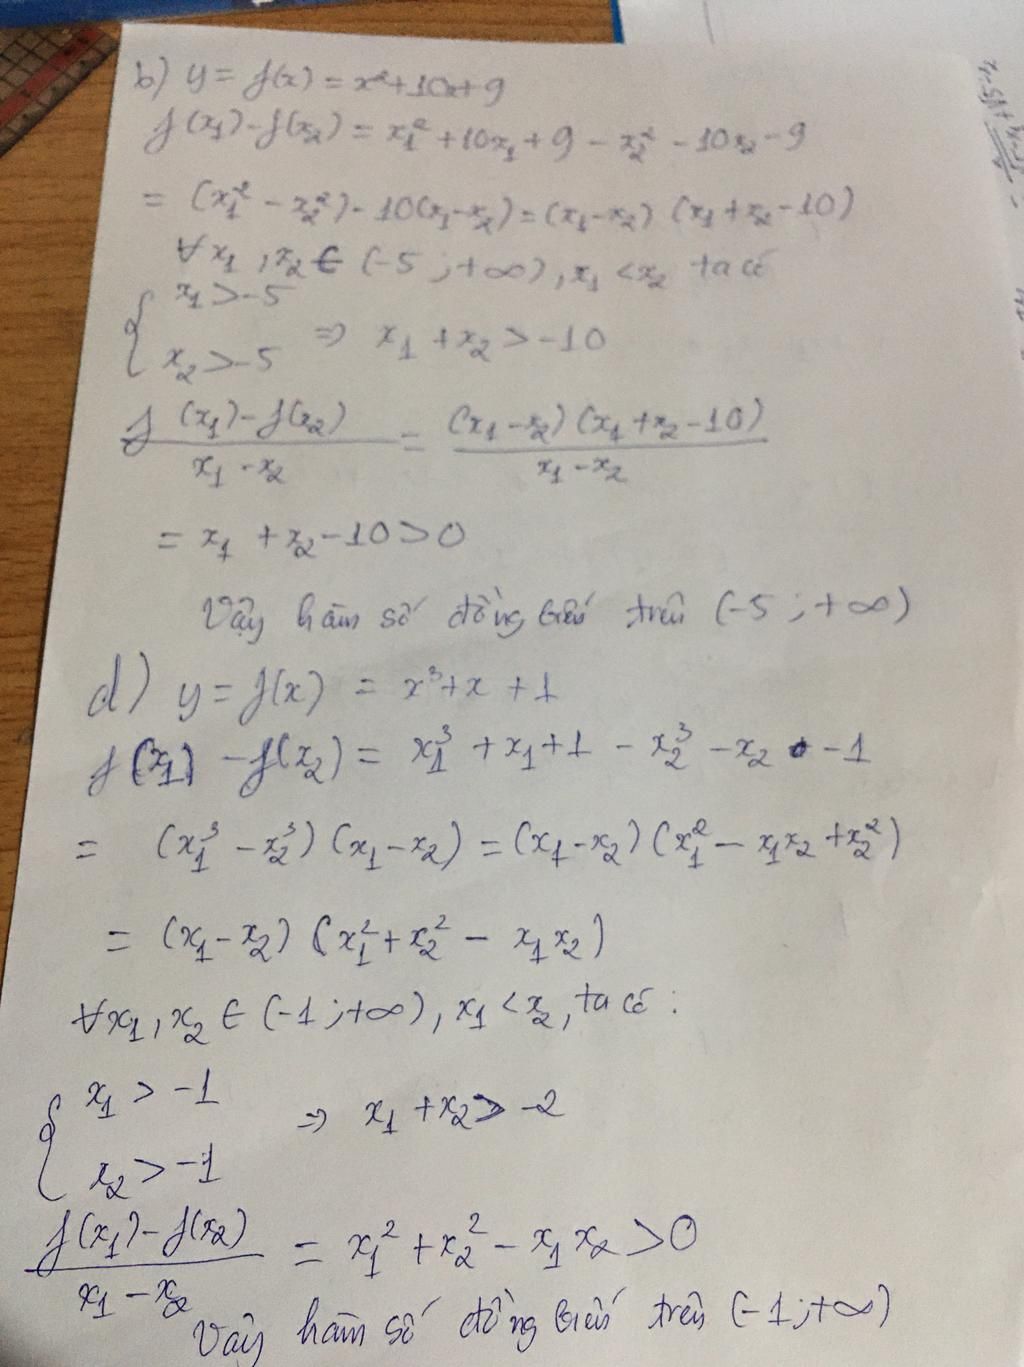 b) y = f(x) = x²+10x+9
f(x₁)-f(x₂) = x₁²+10x₁+9-x₂²-10x₂-9
= (x₁²-x₂²)-10(x₁-x₂)=(x₁-x₂)(x₁+x₂-10)
∀x₁,x₂∈(-5;+∞),x₁<x₂ ta có
{ x₁>-5
x₂>-5 ⇒ x₁+x₂>-10
(f(x₁)-f(x₂))/(x₁-x₂) = ((x₁-x₂)(x₁+x₂-10))/(x₁-x₂)
= x₁+x₂-10>0
Vậy hàm số đồng biến trên (-5;+∞)
d) y=f(x) = x³+x+1
f(x₁)-f(x₂) = x₁³+x₁+1-x₂³-x₂-1
= (x₁³-x₂³)(x₁-x₂)=(x₁-x₂)(x₁²-x₁x₂+x₂²)
= (x₁-x₂)(x₁²+x₂²-x₁x₂)
∀x₁,x₂∈(-1;+∞),x₁<x₂,ta có:
{ x₁>-1
x₂>-1 ⇒ x₁+x₂>-2
(f(x₁)-f(x₂))/(x₁-x₂) = x₁²+x₂²-x₁x₂>0
Vậy hàm số đồng biến trên (-1;+∞)